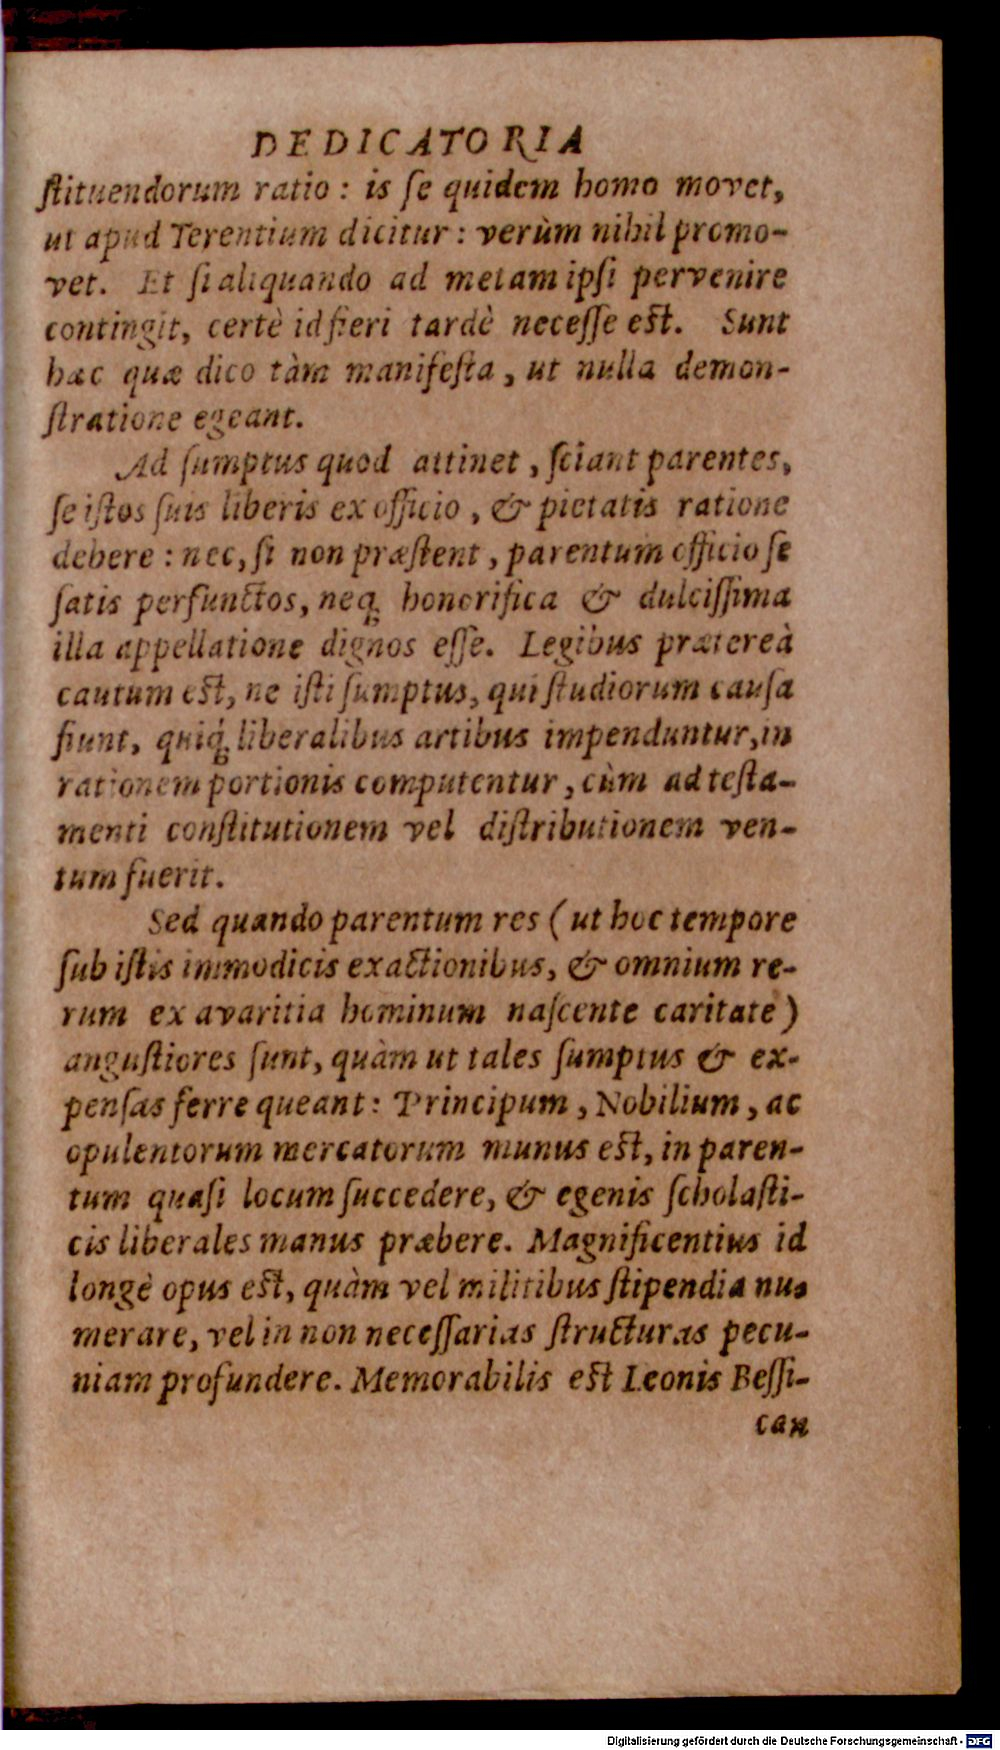 DEDICATORIA
ſtituendorum ratio : is ſe quidem homo movet,
ut apud Terentium dicitur : verùm nihil promo-
vet. Et ſi aliquando ad metam ipſi pervenire
contingit, certè id fieri tardè neceſſe est. Sunt
hæc quæ dico tàm manifeſta, ut nulla demon-
ſtratione egeant.
Ad ſumptus quod attinet, ſciant parentes,
ſe iſtos ſuis liberis ex officio, & pietatis ratione
debere : nec, ſi non præſtent, parentum officio ſe
ſatis perfunctos, neq; honorifica & dulciſſima
illa appellatione dignos eſſe. Legibus prætereà
cautum est, ne iſti ſumptus, qui ſtudiorum cauſa
fiunt, quiq; liberalibus artibus impenduntur, in
rationem portionis computentur, cùm ad teſta-
menti conſtitutionem vel diſtributionem ven-
tum fuerit.
Sed quando parentum res ( ut hoc tempore
ſub iſtis immodicis exactionibus, & omnium re-
rum ex avaritia hominum naſcente caritate )
anguſtiores ſunt, quàm ut tales ſumptus & ex-
penſas ferre queant : Principum, Nobilium, ac
opulentorum mercatorum munus est, in paren-
tum quaſi locum ſuccedere, & egenis ſcholaſti-
cis liberales manus præbere. Magnificentius id
longè opus est, quàm vel militibus ſtipendia nu-
merare, vel in non neceſſarias ſtructuras pecu-
niam profundere. Memorabilis est Leonis Beſſi-
can
Digitalisierung gefördert durch die Deutsche Forschungsgemeinschaft - DFG